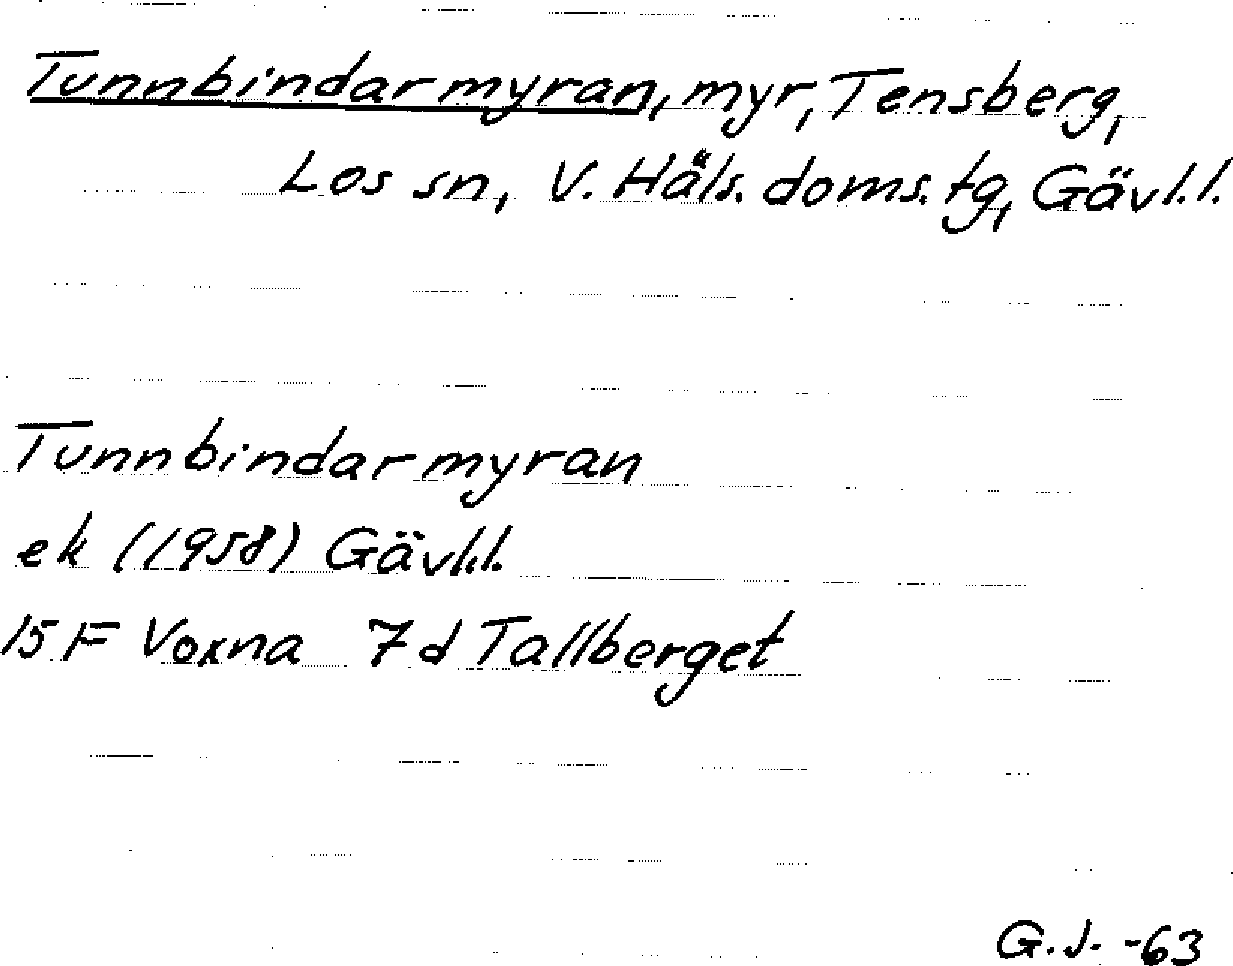 Tunnbindarmyran, myr, Tensberg,
Los sn, V. Häls. doms. tg, Gävl.l.
Tunnbindarmyran
ek (1958) Gävl.l.
15 F Voxna 7 d Tallberget
G.J. -63